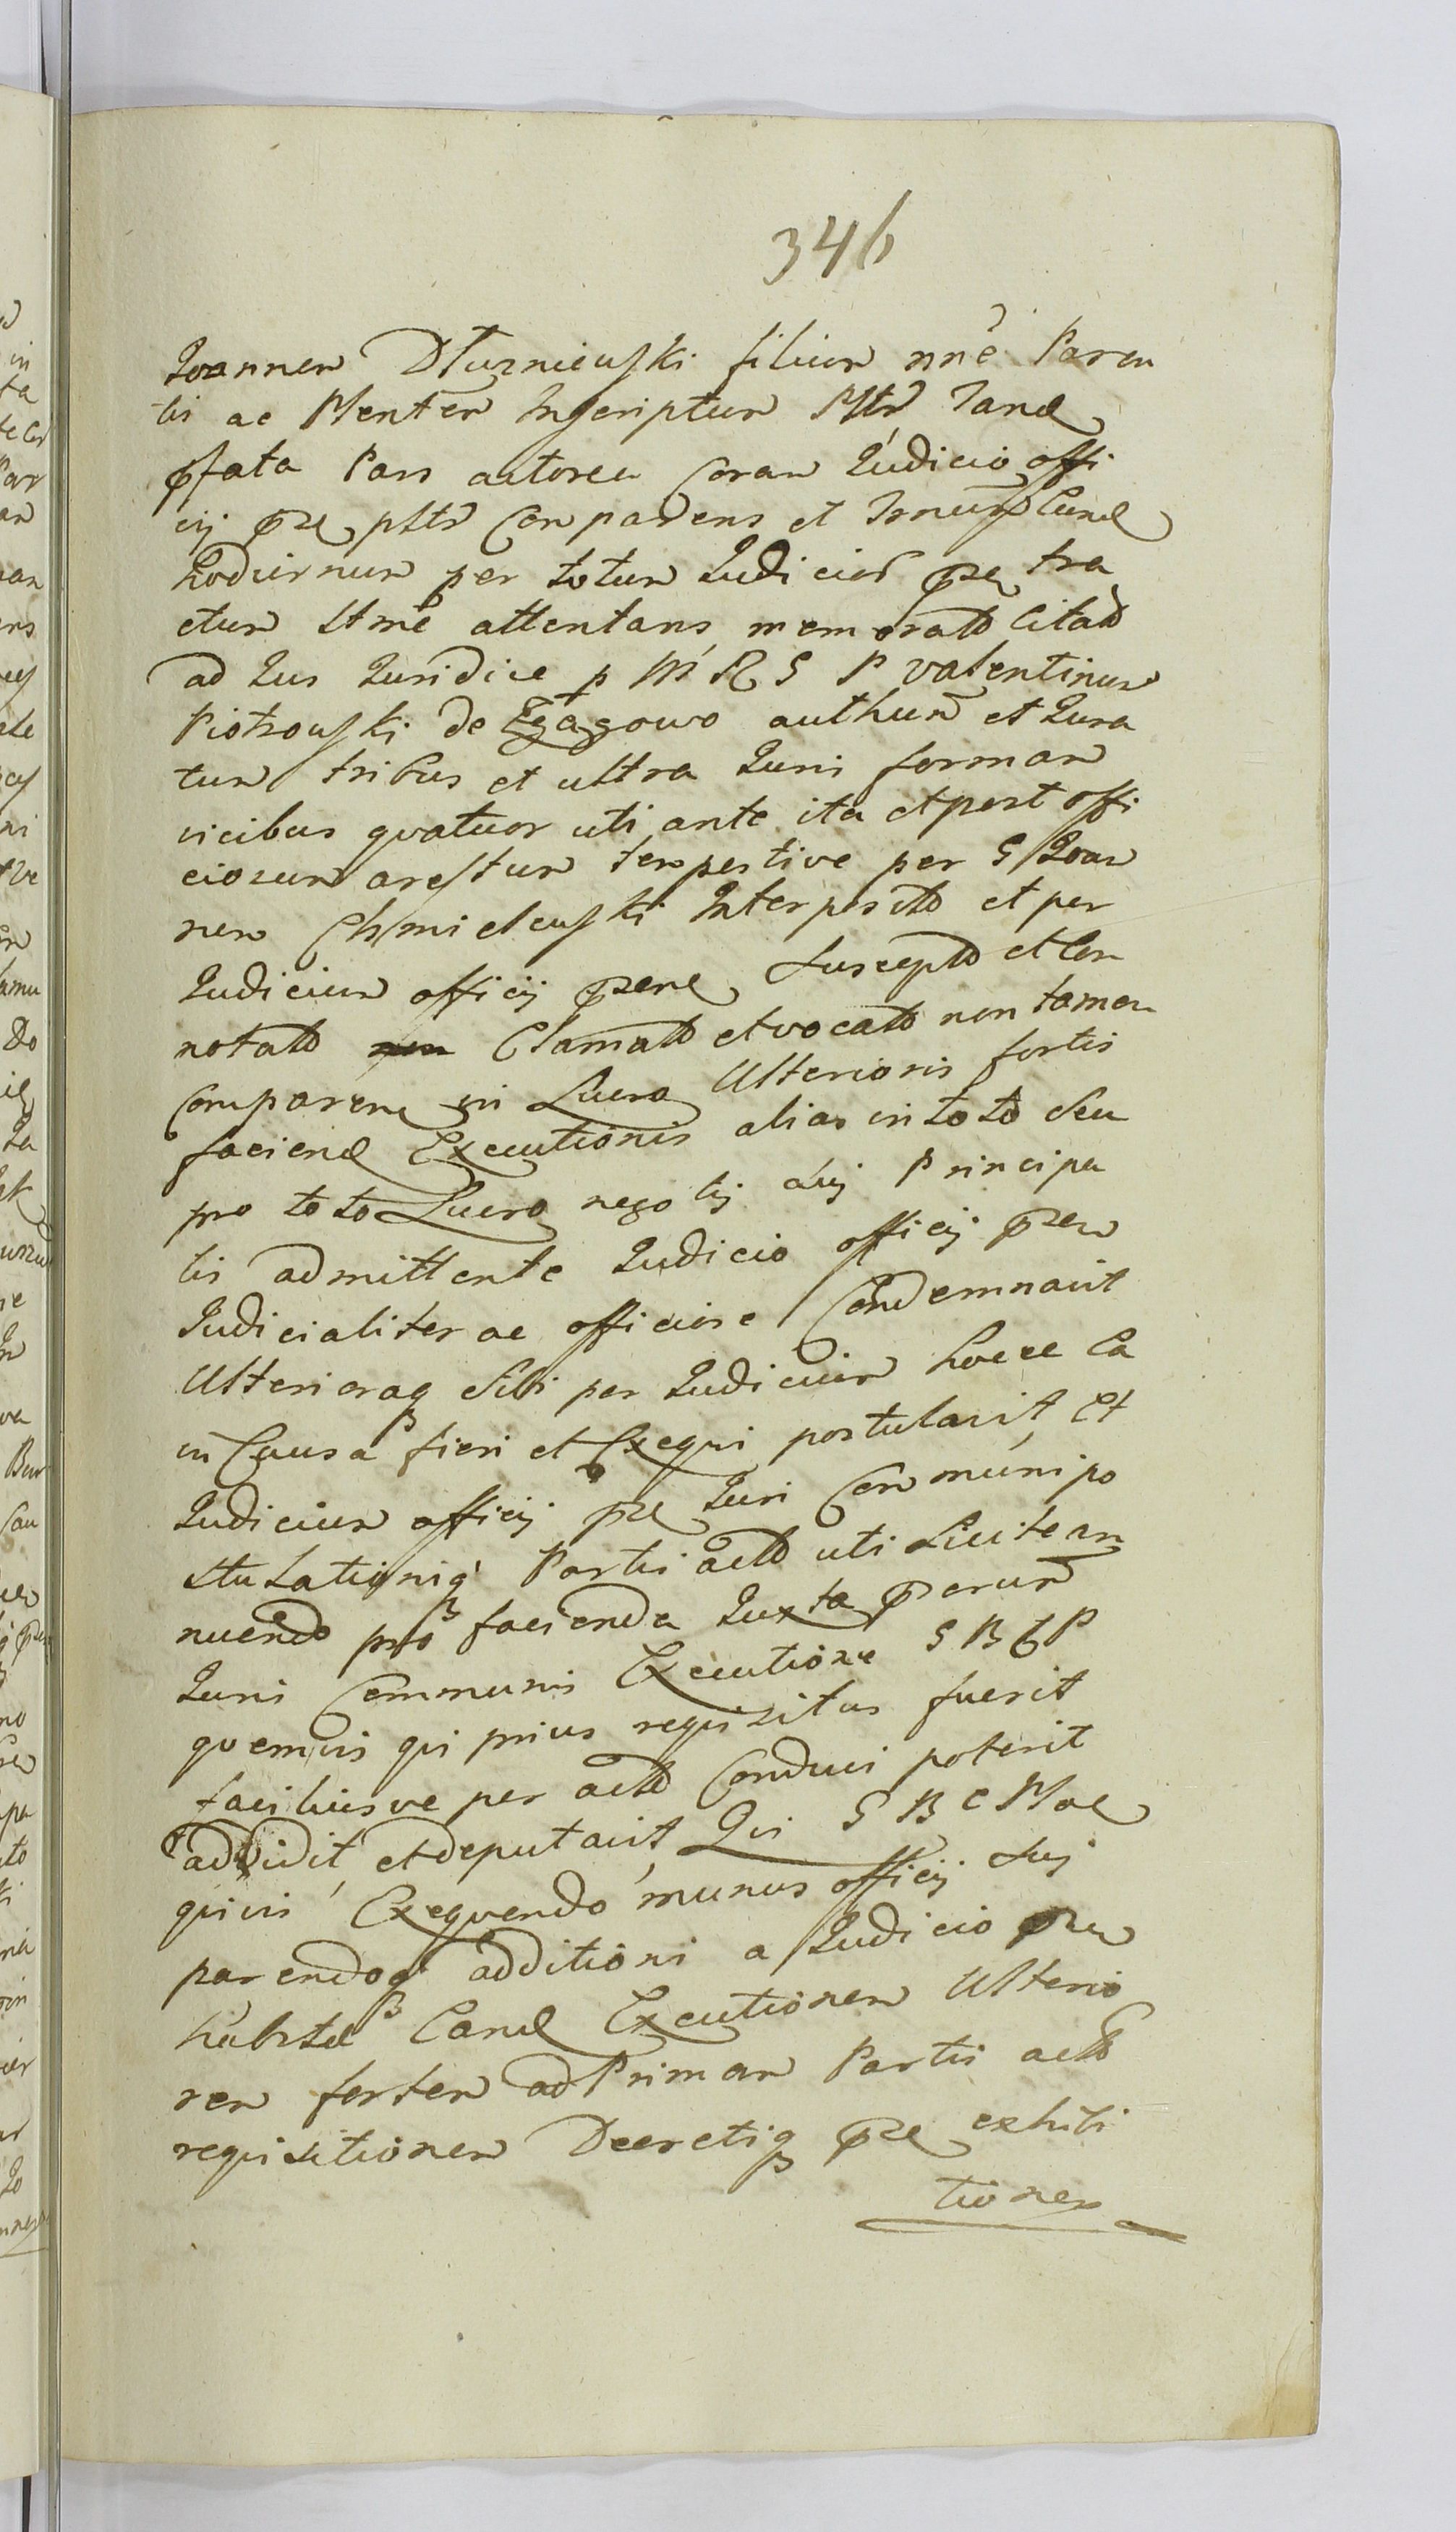 346
Joannem Dłuzniewski filium nnē Paren
tis ac Mentem Inscriptum
pfata Pars actorea Coram Judicio offi
cij pze Comparens et
hodiernum per totum Judicior pze tra
ctum ltmē attentans memorato Citato
ad Jus Juridice p M R G P Valentinum
Piotrowski de authum et Jura
tum tribus et ultra Juris formam
vicibus quatuor uti ante ita et post offi
ciosum arestum tempestive per G Joan
nem Chmielewski Interposito et per
Judicium officij pzens Suscepto et Con
notato Clamato et vocato non tamen
Comparen in Lucro Ulterioris fortis
faciend Executionis alias in toto seu
pro toto Lucro negotij Principa
lis admittente Judicio officij pzen
Judicialiter ac officiose Condemnavit
Ulterioraq Sibi per Judicium hocce Ca
in Causa fieri et Exequi postulavit Et
Judicium officij pze Juri Communi po
stulationiq Partis acto uti Licite an
nuendo pro facienda Juxta
Juris Communis Executione G B C P
quemvis qui prius requisitus fuerit
faciliusve per acto Conduci poterit
addidit et deputavit Qui G B C
quivis Exequendo munus officij sui
parendoq additioni a Judicio pzen
habita Executionem Ulterio
rem fortem ad Primam Partis acto
requisitionem Decretiq pze exhibi
tionem